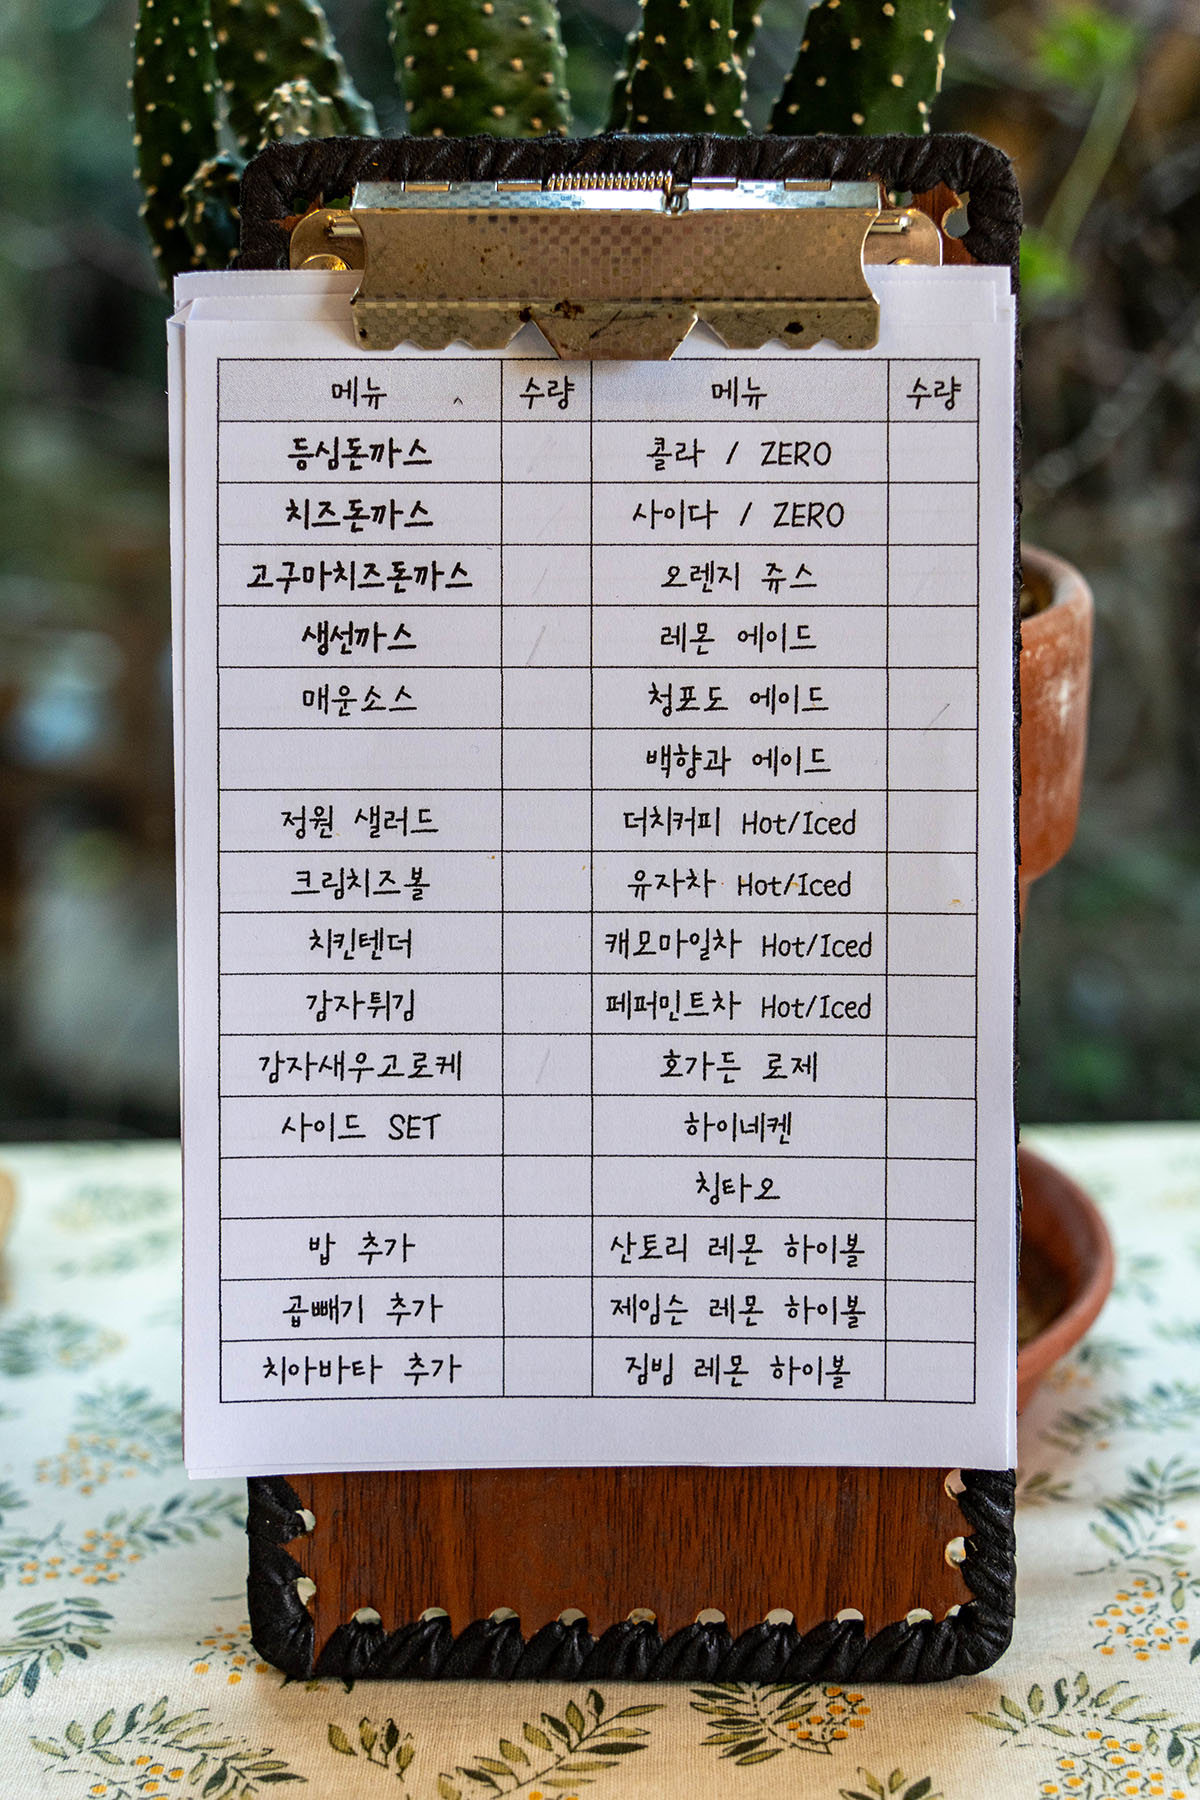 메뉴 수량 메뉴 수량
등심돈까스 콜라 / ZERO
치즈돈까스 사이다 / ZERO
고구마치즈돈까스 오렌지 쥬스
생선까스 레몬 에이드
매운소스 청포도 에이드
백향과 에이드
정원 샐러드 더치커피 Hot/Iced
크림치즈볼 유자차 Hot/Iced
치킨텐더 캐모마일차 Hot/Iced
감자튀김 페퍼민트차 Hot/Iced
감자새우고로케 호가든 로제
사이드 SET 하이네켄
칭타오
밥 추가 산토리 레몬 하이볼
곱빼기 추가 제임슨 레몬 하이볼
치아바타 추가 짐빔 레몬 하이볼